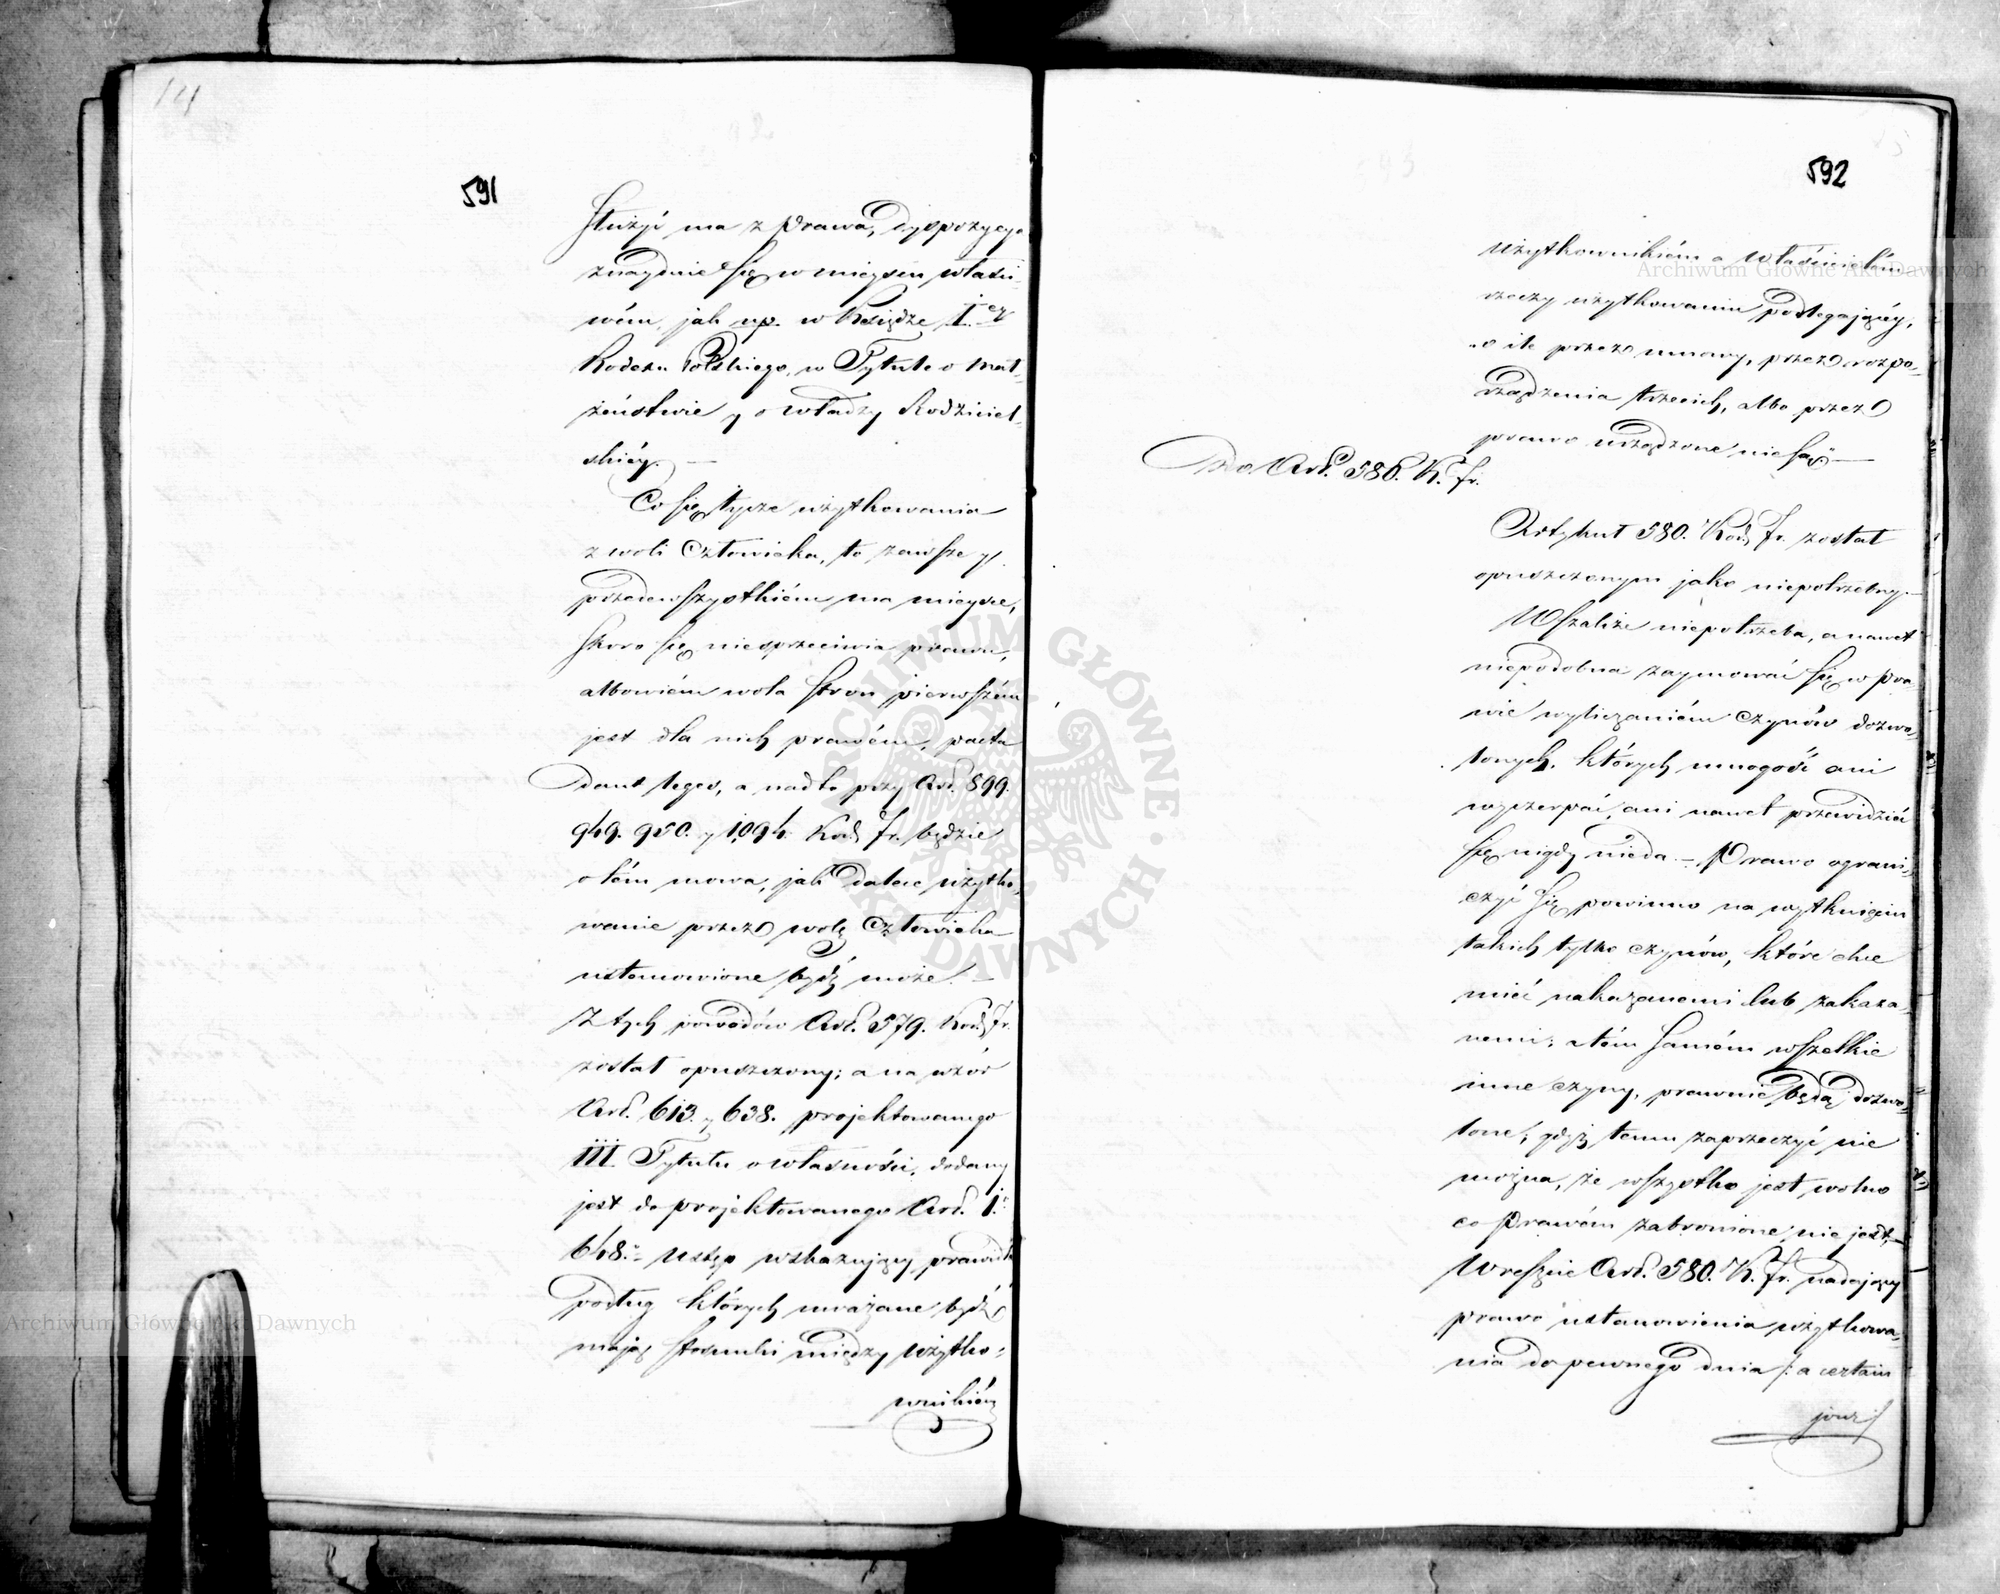 14
591
służyć ma z Prawa, dyspozycya
znaydzie się w mieyscu właści-
wém, jak np. w Księdze I.ey
Kodexu Polskiego, w Tytule o mał-
żeństwie y o władzy Rodziciel-
skiéy. —
Co się tycze użytkowania
z woli Człowieka, to zawsze y
przedewszystkiém ma mieysce,
skoro się niesprzeciwia prawu,
albowiém wola stron pierwszém
jest dla nich prawém, pacta
dant leges, a nadto przy Art. 899.
949. 950. y 1094. Kod. fr. będzie
o tém mowa, jak dalece użytko-
wanie przez wolę Człowieka
ustanowione bydź może. —
Z tych powodów Art. 579. Kod. fr.
został opuszczony; a na wzór
Art. 613. y 638. projektowanego
III Tytułu o własności, dodany
jest do projektowanego Art. 1.
648. Ustęp wskazujący prawidła
podług których uważane bydź
mają stosunki między użytko-
wnikiém
592
użytkownikiém a właścicielém
rzeczy użytkowaniu podlegającéy,
o ile przez umowy, przez rozpo-
rządzenia trzecich, albo przez
prawo urządzone nie są. —
Do Art. 580. K. fr.
Artykuł 580. Kod. fr. został
opuszczonym jako niepotrzebny. —
Wszakże niepotrzeba, a nawet
niepodobna zaymować się w pra-
wie wyliczaniém czynów dozwo-
lonych, których mnogość ani
wyczerpać, ani nawet przewidzieć
się nigdy nieda. — Prawo ograni-
czyć się powinno na wytknięciu
takich tylko czynów, które chce
mieć nakazanemi lub zakaza-
nemi; a tém samém wszelkie
inne czyny, prawnie będą dozwo-
lone; gdyż temu zaprzeczyć nie
można, że wszystko jest wolno
co Prawém zabronione nie jest. —
Wreszcie Art. 580. K. fr. nadający
prawo ustanowienia użytkowa-
nia do pewnego dnia /: a certain
jour :/